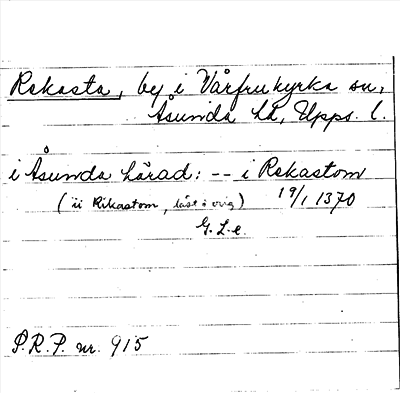 Rekasta, by i Vårfrukyrka sn,
Åsunda hd, Upps. l.
i Åsunda härad: -- i Rekastom
(ii Rikastom, läst i orig) 19/1 1370
G. L-e.
P.R.P. nr. 915